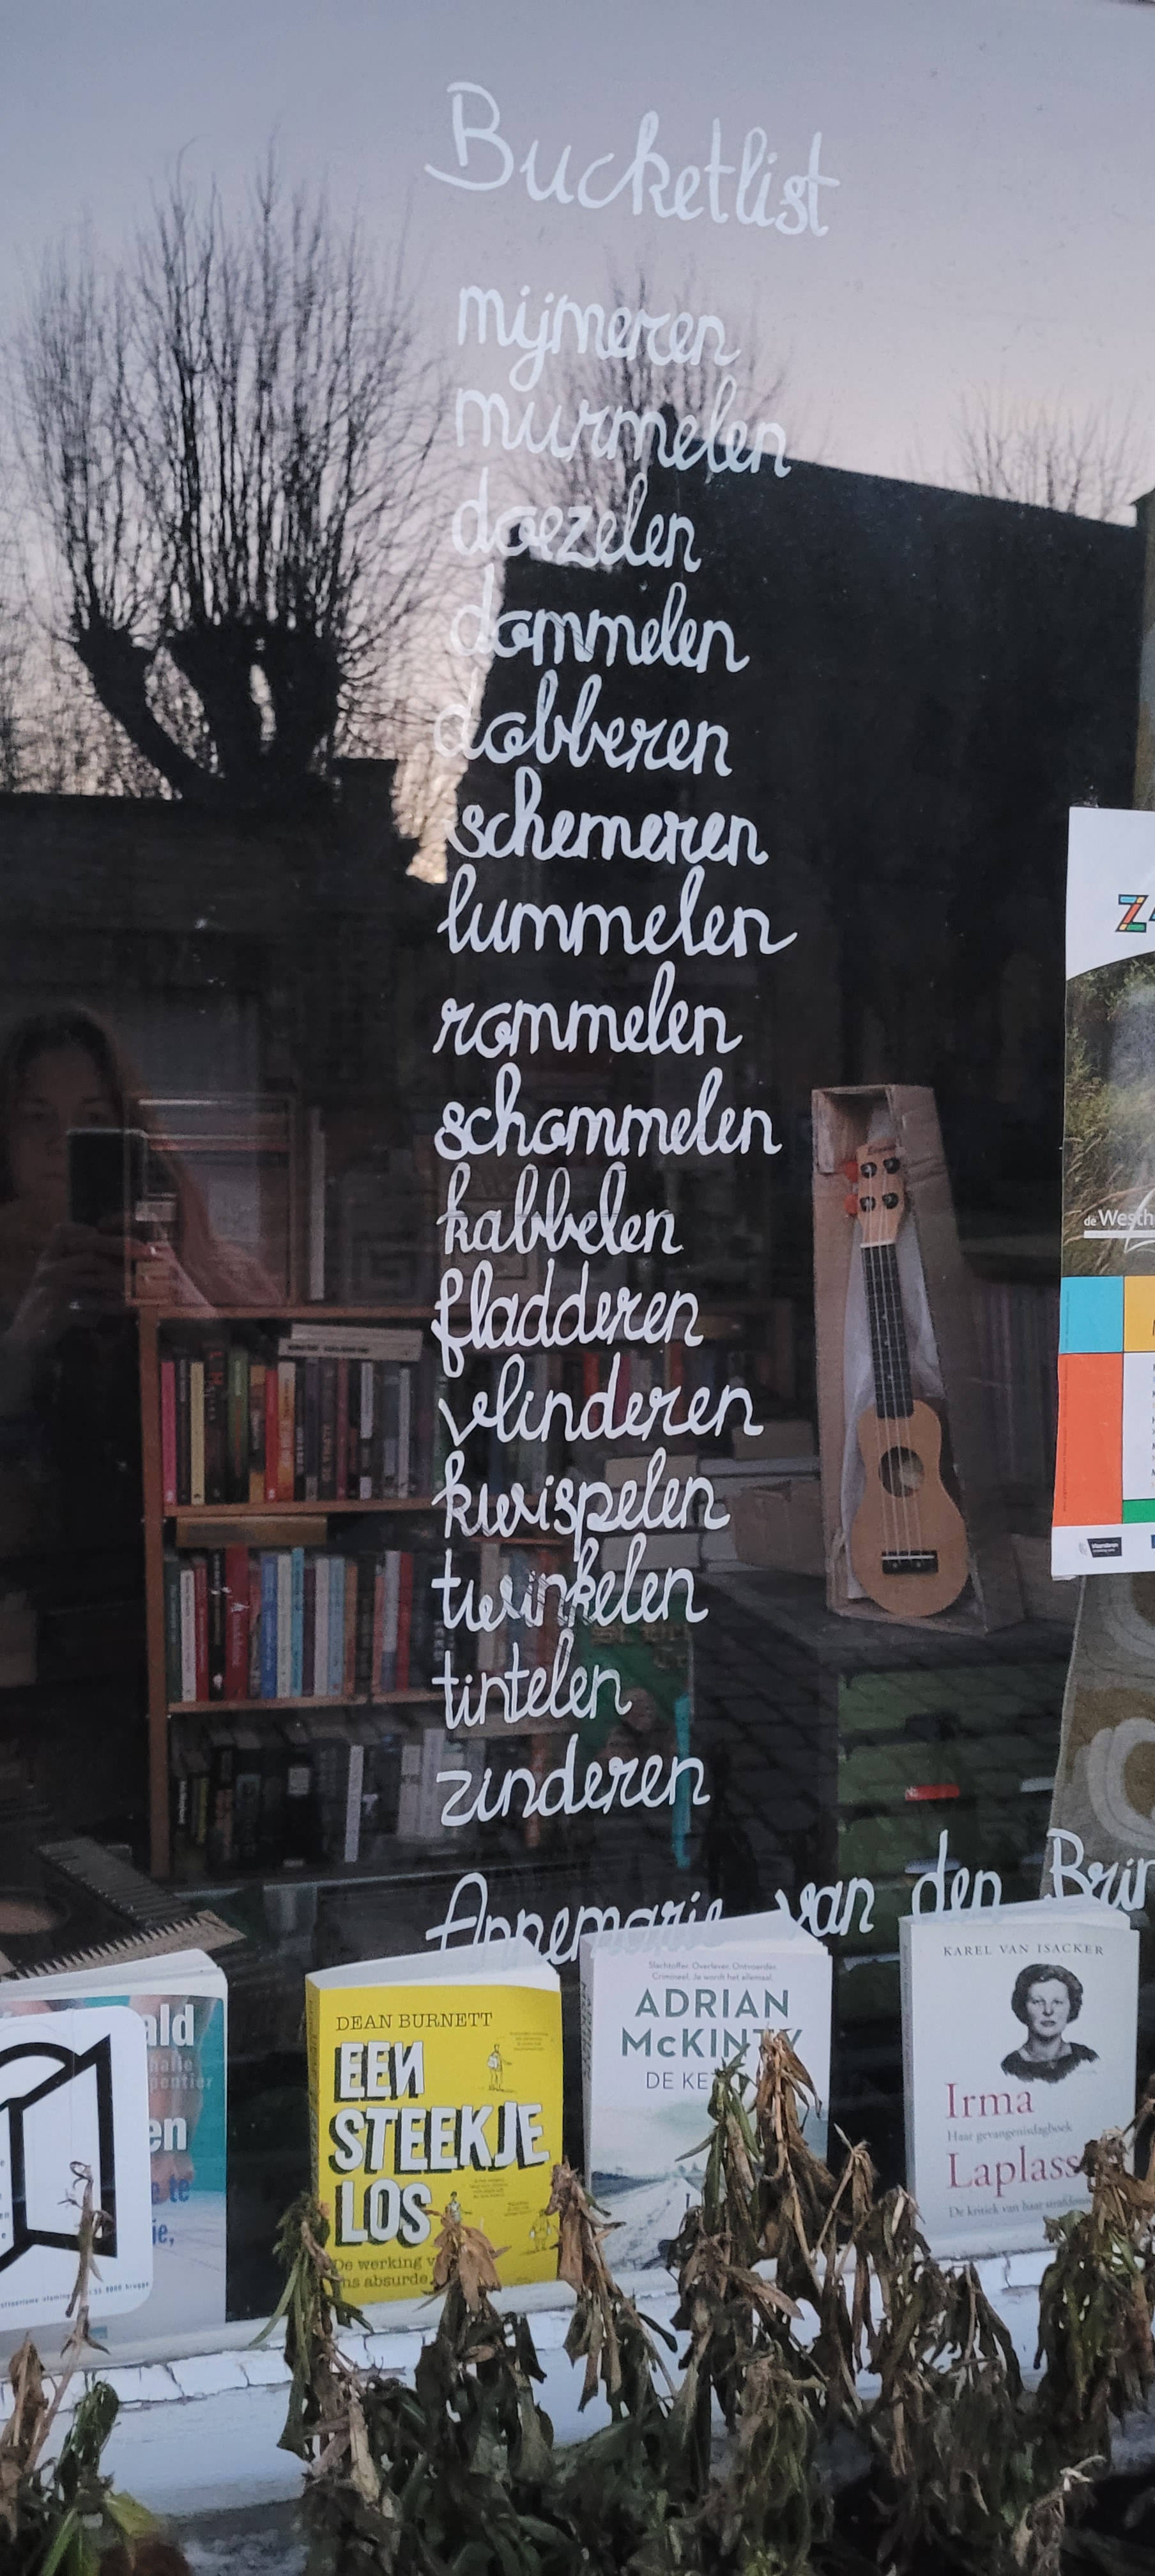 Bucketlist
mijmeren
murmelen
doezelen
dommelen
dobberen
schemeren
lummelen
rommelen
schommelen
kabbelen
fladderen
vlinderen
kwispelen
twinkelen
tintelen
zinderen
Annemarie van den Brin
de Westh
DEAN BURNETT
EEN
STEEKJE
LOS
De werking v
ns absurde
Slachtoffer. Overlever. Ontvoerder.
Crimineel. Je wordt het allemaal.
ADRIAN
McKINTY
DE KE
KAREL VAN ISACKER
Irma
Haar gevangenisdagboek
Laplass
De kritiek van haar
ald
halie
pentier
en
te
ie,